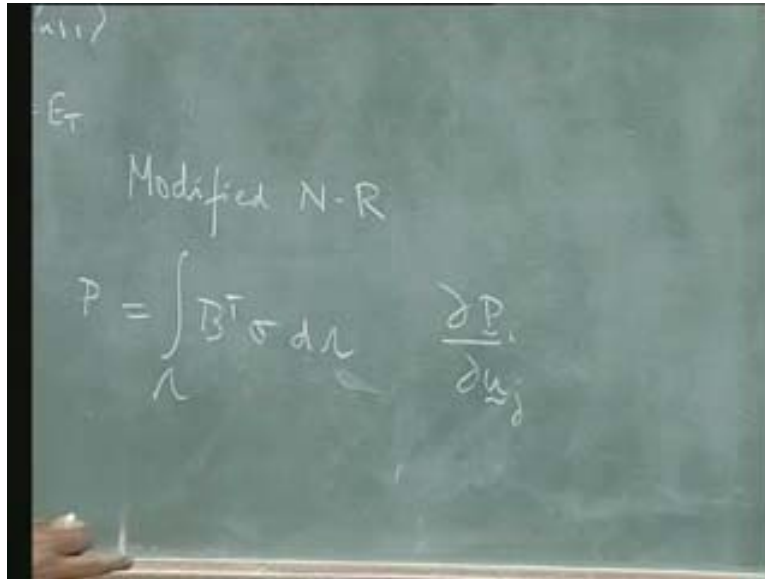 E_T
Modified N-R
P = ∫_Ω B^T σ dΩ    ∂P_i / ∂u_j